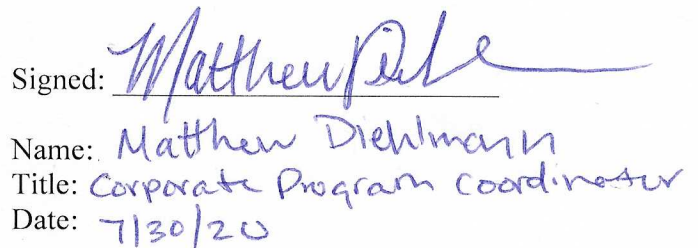 Signed: Matthew Diehl
Name: Matthew Diehlmann
Title: Corporate Program Coordinator
Date: 7/30/20